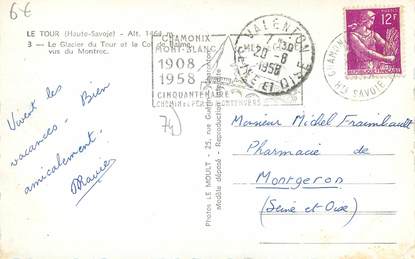 6€
LE TOUR (Haute-Savoie) - Alt. 1464 m.
3 - Le Glacier du Tour et la Col de Balme
vus du Montroc.
CHAMONIX
MONT-BLANC
1908
1958
CINQUANTENAIRE
CHEMIN DE FER DU MONTENVERS
VALENTON
20-8
1958
SEINE ET OISE
12F
CHAMONIX
HTE SAVOIE
(74)
Vivent les
vacances. Bien
amicalement.
Photos LE MOULT - 25, rue
Modèle déposé - Reproduction
Monsieur Michel Fraimbault
Pharmacie de
Montgeron
(Seine et Oise)